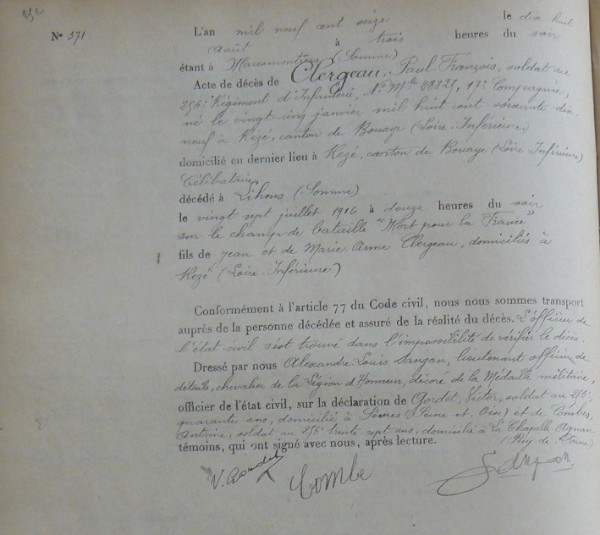 352
N° 371
L'an mil neuf cent seize le dix huit
août à trois heures du soir
étant à Marcamontiers (Somme)
Acte de décès de Clergeau, Paul François, soldat au
256e Régiment d'Infanterie, N° Mle 8882, 17e Compagnie,
né le vingt cinq janvier mil huit cent soixante dix
neuf à Rezé, canton de Bouaye (Loire Inférieure)
domicilié en dernier lieu à Rezé, canton de Bouaye (Loire Inférieure)
Célibataire
décédé à Lihons (Somme)
le vingt sept juillet 1916 à douze heures du soir
sur le champ de bataille "Mort pour la France"
fils de Jean et de Marie Anne Clergeau, domiciliés à
Rezé (Loire Inférieure)
Conformément à l'article 77 du Code civil, nous nous sommes transport
auprès de la personne décédée et assuré de la réalité du décès. L'officier de
l'état civil s'est trouvé dans l'impossibilité de vérifier le décès.
Dressé par nous Alexandre Louis Sanzan, lieutenant officier de
détails, chevalier de la Légion d'Honneur, décoré de la Médaille militaire,
officier de l'état civil, sur la déclaration de Victor, soldat au 256e,
quarante ans, domicilié à Sèvres (Seine et Oise) et de Combe,
Antoine, soldat au 256e trente sept ans, domicilié à La Chapelle Agnon
témoins, qui ont signé avec nous, après lecture. (Puy de Dôme)
Combe